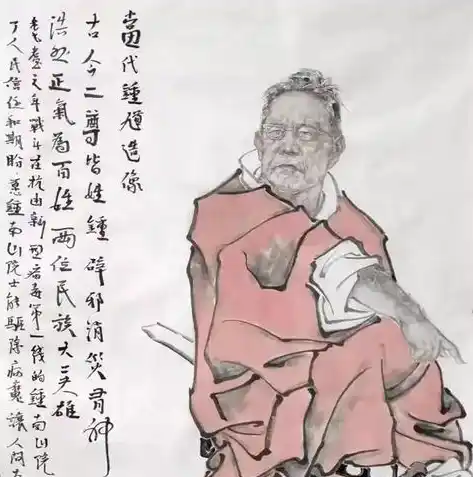 當代鍾馗造像
古今二尊皆姓鍾 辟邪消災有神
浩然正氣為百姓 两位民族大英雄
耄耋之年戰斗在抗击新型病毒第一线的鍾南山院
了人民信任和期盼愿鍾南山院士能驅除病魔 讓人間